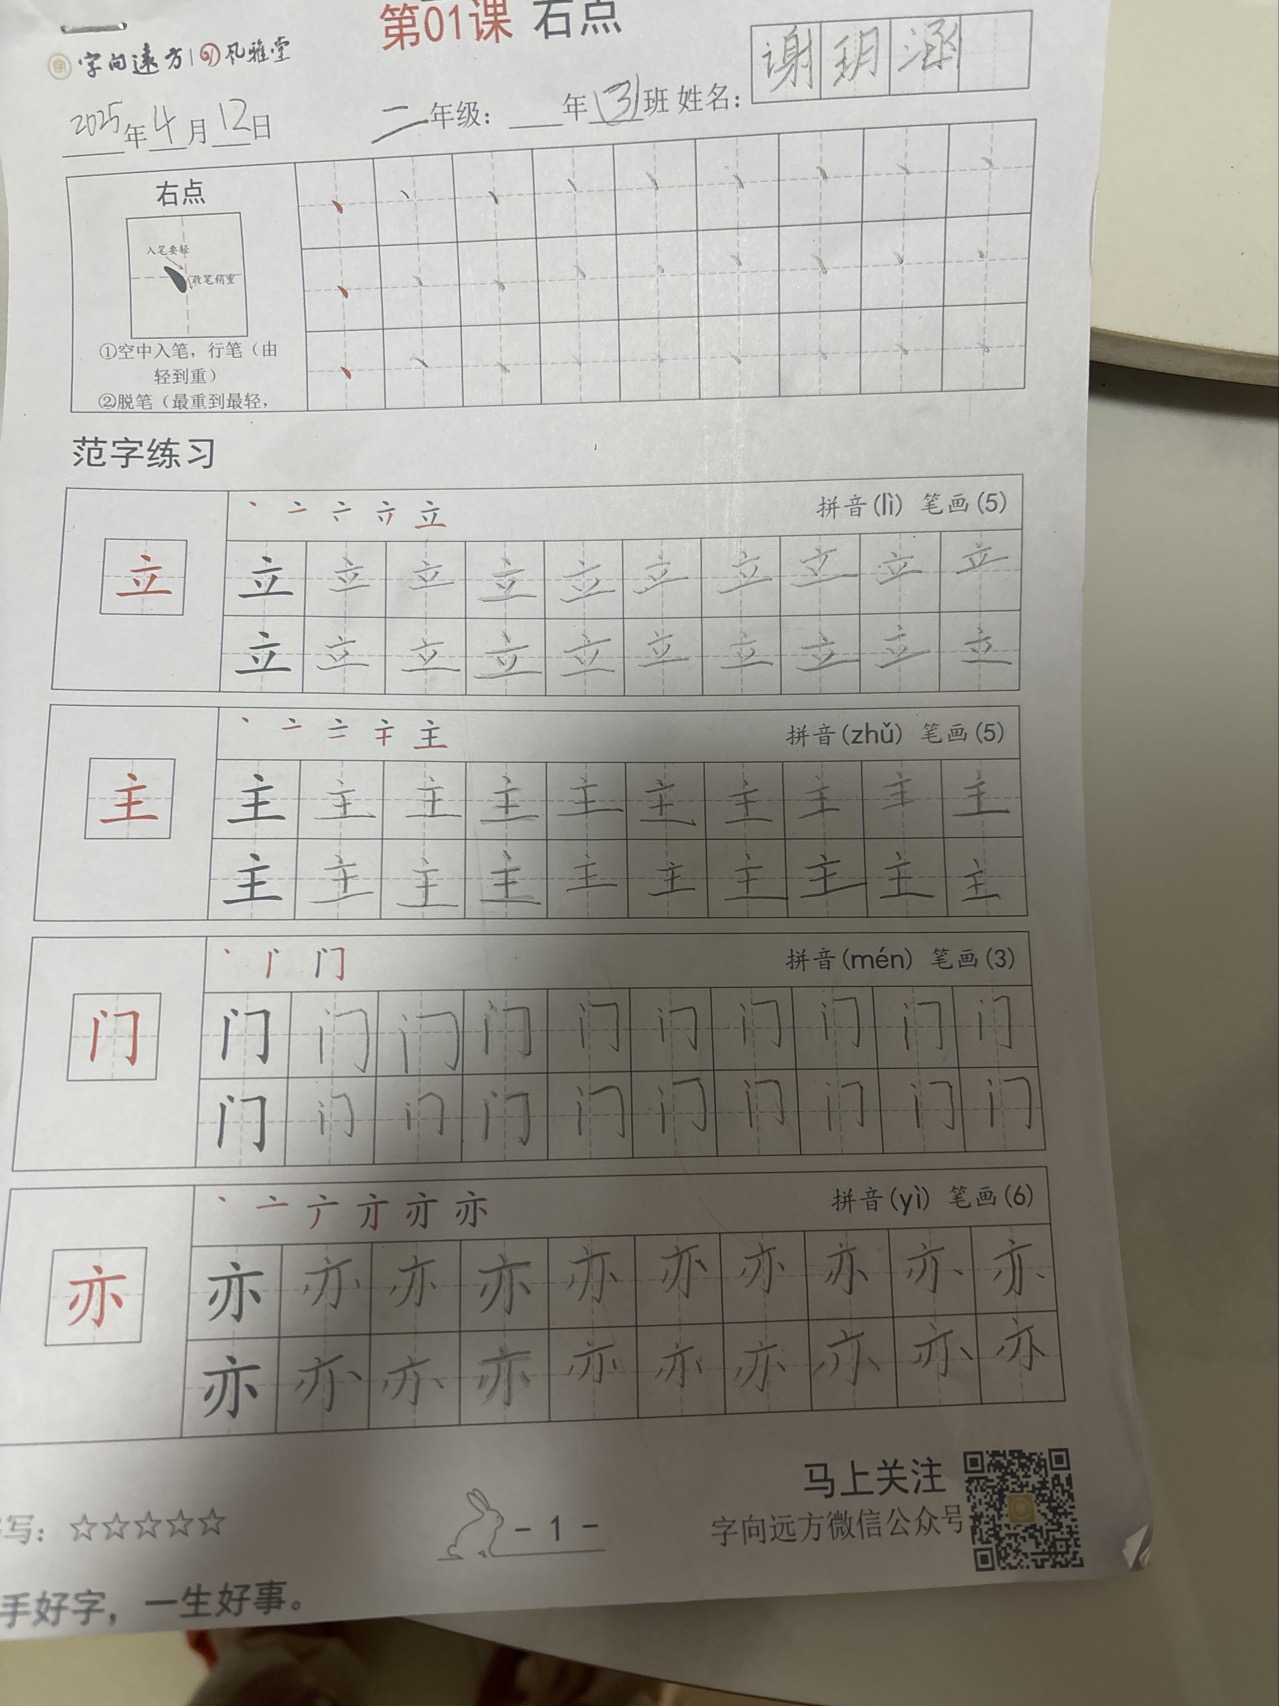 第01课 右点
字向远方 风雅堂
2025年4月12日 二年级： 年(3)班 姓名：谢玥涵
右点
入笔要轻
收笔稍重
①空中入笔，行笔（由
轻到重）
②脱笔（最重到最轻，
范字练习
拼音(lì) 笔画(5)
立 立 立 立 立 立 立 立 立 立 立
立 立 立 立 立 立 立 立 立 立
拼音(zhǔ) 笔画(5)
主 主 主 主 主 主 主 主 主 主 主
主 主 主 主 主 主 主 主 主 主
拼音(mén) 笔画(3)
门 门 门 门 门 门 门 门 门 门 门
门 门 门 门 门 门 门 门 门 门
拼音(yì) 笔画(6)
亦 亦 亦 亦 亦 亦 亦 亦 亦 亦 亦
亦 亦 亦 亦 亦 亦 亦 亦 亦 亦
写：☆☆☆☆☆
- 1 -
马上关注
字向远方微信公众号
手好字，一生好事。